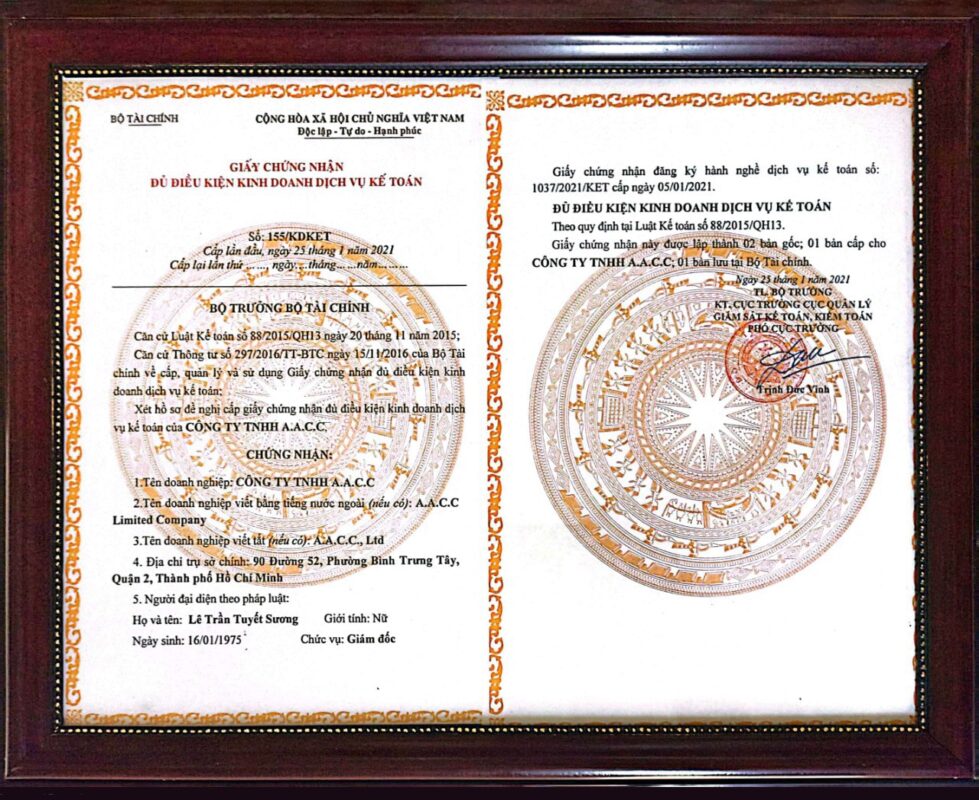 BỘ TÀI CHÍNH
CỘNG HÒA XÃ HỘI CHỦ NGHĨA VIỆT NAM
Độc lập - Tự do - Hạnh phúc
GIẤY CHỨNG NHẬN
ĐỦ ĐIỀU KIỆN KINH DOANH DỊCH VỤ KẾ TOÁN
Số: 155/KDKET
Cấp lần đầu, ngày 25 tháng 1 năm 2021
Cấp lại lần thứ ......, ngày....tháng......năm.........
BỘ TRƯỞNG BỘ TÀI CHÍNH
Căn cứ Luật Kế toán số 88/2015/QH13 ngày 20 tháng 11 năm 2015;
Căn cứ Thông tư số 297/2016/TT-BTC ngày 15/11/2016 của Bộ Tài
chính về cấp, quản lý và sử dụng Giấy chứng nhận đủ điều kiện kinh
doanh dịch vụ kế toán;
Xét hồ sơ đề nghị cấp giấy chứng nhận đủ điều kiện kinh doanh dịch
vụ kế toán của CÔNG TY TNHH A.A.C.C.
CHỨNG NHẬN:
1.Tên doanh nghiệp: CÔNG TY TNHH A.A.C.C
2.Tên doanh nghiệp viết bằng tiếng nước ngoài (nếu có): A.A.C.C
Limited Company
3.Tên doanh nghiệp viết tắt (nếu có): A.A.C.C., Ltd
4. Địa chỉ trụ sở chính: 90 Đường 52, Phường Bình Trưng Tây,
Quận 2, Thành phố Hồ Chí Minh
5. Người đại diện theo pháp luật:
Họ và tên: Lê Trần Tuyết Sương Giới tính: Nữ
Ngày sinh: 16/01/1975 Chức vụ: Giám đốc
Giấy chứng nhận đăng ký hành nghề dịch vụ kế toán số:
1037/2021/KET cấp ngày 05/01/2021.
ĐỦ ĐIỀU KIỆN KINH DOANH DỊCH VỤ KẾ TOÁN
Theo quy định tại Luật Kế toán số 88/2015/QH13.
Giấy chứng nhận này được lập thành 02 bản gốc; 01 bản cấp cho
CÔNG TY TNHH A.A.C.C; 01 bản lưu tại Bộ Tài chính.
Ngày 25 tháng 1 năm 2021
TL. BỘ TRƯỞNG
KT. CỤC TRƯỞNG CỤC QUẢN LÝ
GIÁM SÁT KẾ TOÁN, KIỂM TOÁN
PHÓ CỤC TRƯỞNG
Trịnh Đức Vinh